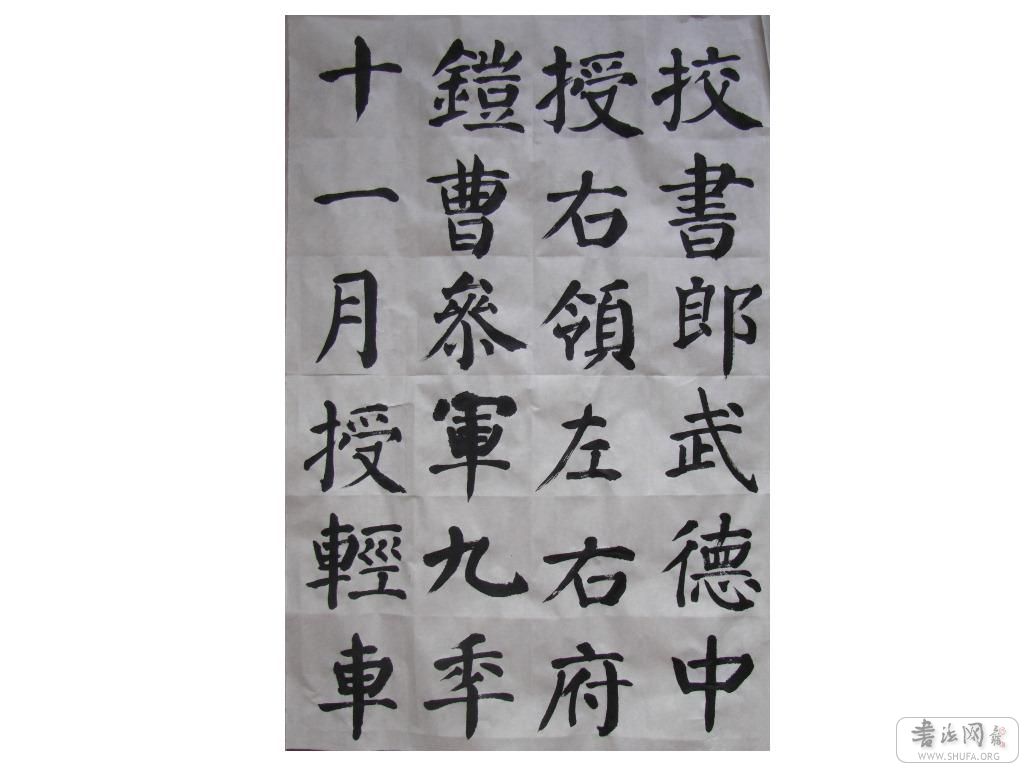 挍書郎武德中
授右領左右府
鎧曹叅軍九秊
十一月授輕車
書法网
WWW.SHUFA.ORG